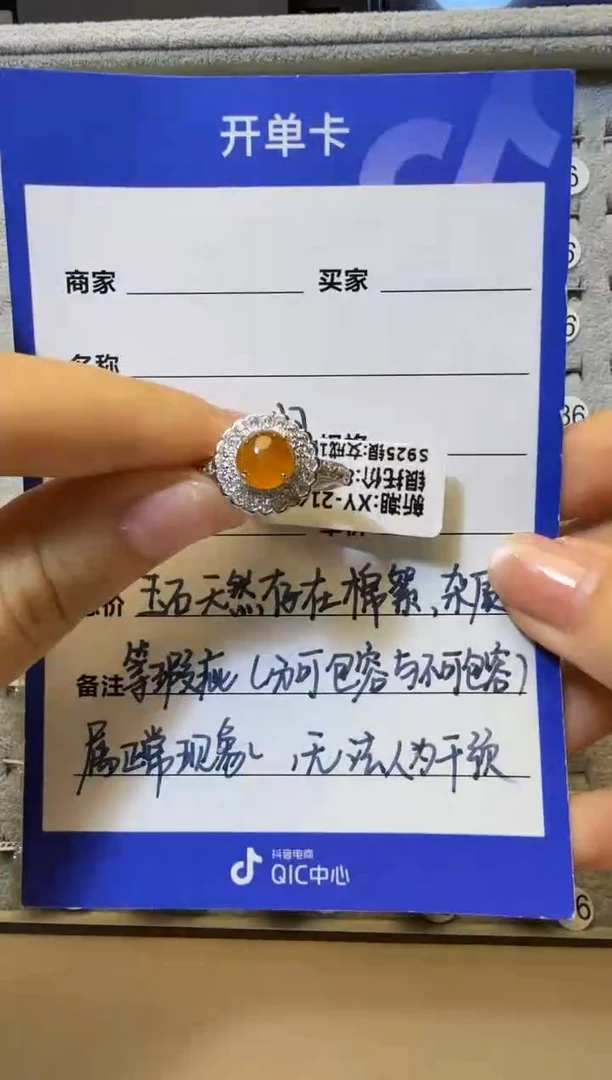 开单卡
商家 买家
名称
S925银:女戒1
银托价:
新潮:XY-21
价 玉石天然存在棉絮、杂质
备注 等瑕疵(分可包容与不可包容)
属正常现象,无法人为干预
抖音电商
QIC中心
6
6
6
36
6